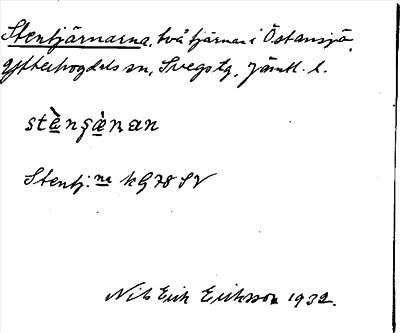 Stentjärnarna, två tjärnar i Östansjö,
Ytterhogdals sn, Svegs tg, Jämtl. l.
stæ̀nʂæ̀ṇan
Stentj:na kG 78 SV
Nils Erik Eriksson 1932.